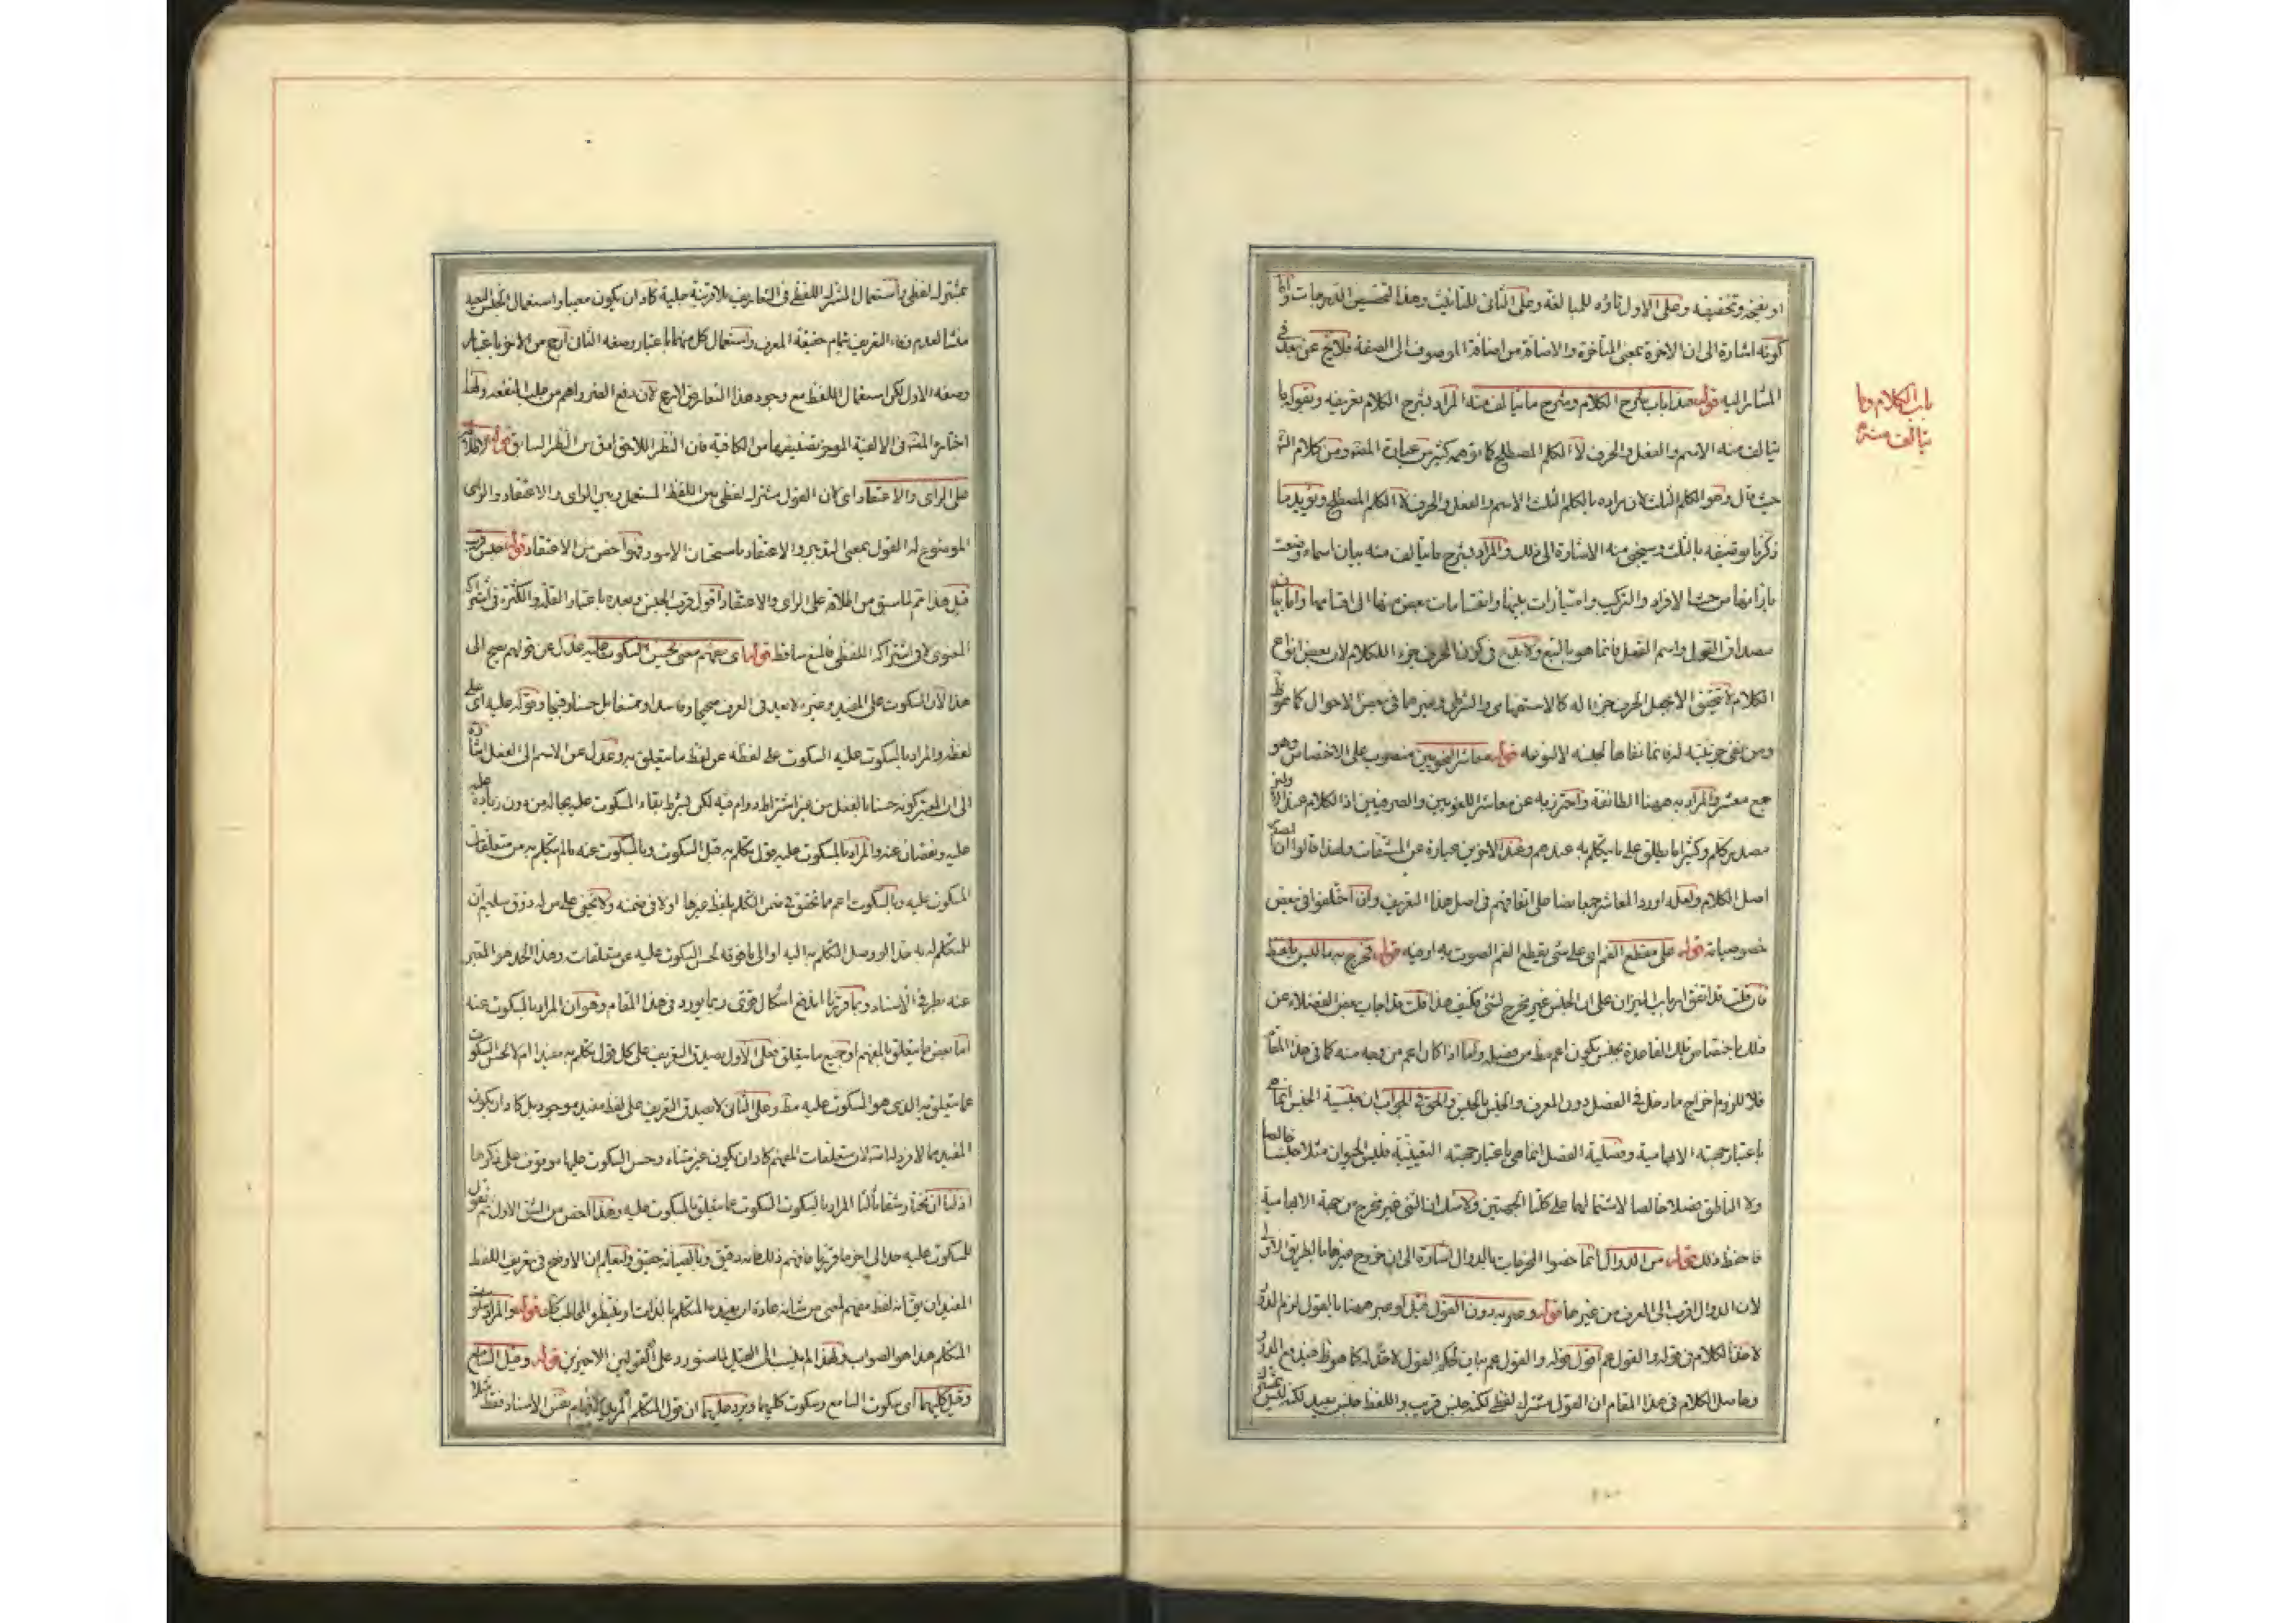 او بفتحه وتخفيفه وعلى الاول تاؤه للمبالغة وعلى الثانى للتانيث وهذا لتحسين الدرجات واما
كونه اشارة الى ان الاخرة بمعنى المتأخرة والاضافة من اضافة الموصوف الى الصفة فلا يخ عن بعد فى
المشار اليه قوله هذا باب شرح الكلام وشرح ما يتألف منه المراد بشرح الكلام تعريفه وبقوله ما
يتالف منه الاسم والفعل والحرف لا الكلم المصطلح كما توهمه كثير من عبارة المصنف ومن كلام الش
حيث قال وهو الكلم الثلث لان مراده بالكلم الثلث الاسم والفعل والحرف لا الكلم المصطلح ويؤيد ما
ذكرنا توصيفه بالثلث وسيجئ منه الاشارة الى ذلك والمراد بشرح ما يتالف منه بيان اسماء وضعت
بازائها من حيث الافراد والتركيب وامتيازات بينها وانقسامات بعض منها الى اقسامها واما بيان
مصداق القول واسم الفعل فانما هو بالتبع ولا يقدح فى كون الحرف جزء للكلام لان بعض انواع
الكلام لا يتحقق الا بجعل الحرف جزا له كالاستفهامى والشرطى وغيرهما فى بعض الاحوال كما هو ظ
ومن نفى جزئيته له فانما نفاها لجنسه لا لنوعه قوله معاشر النحويين منصوب على الاختصاص وهو
جمع معشر والمراد به ههنا الطائفة واحترز به عن معاشر اللغويين والصرفيين اذ الكلام عند الاولين
مصدر كلم وكثيرا ما يطلق على ما يتكلم به عندهم وعند الاخرين عبارة عن المشتقات ولهذا قالوا ان المصدر
اصل الكلام ولعله اورد المعاشر جمعا نصا على اتفاقهم فى اصل هذا التعريف وان اختلفوا فى بعض
خصوصياته قوله على مقطع الفم اى على شئ يقطع الفم الصوت به او فيه قوله فخرج به ما ليس بلفظ
فان قلت قد اتفق ارباب الميزان على ان الجنس غير مخرج لشئ فكيف هذا قلت قد اجاب بعض الفضلاء عن
ذلك باختصاص تلك القاعدة بجنس يكون اعم مط من فصله واما اذا كان اعم من وجه منه كما فى هذا المقام
فلا للزوم اخراج ما دخل فى الفصل دون المعرف والجنس بالجنس والحق فى الجواب ان جنسية الجنس انما هى
باعتبار جهته الابهامية وفصلية الفصل انما هى باعتبار جهته التعينية فليس الحيوان مثلا جنسا خالصا
ولا الناطق فصلا خالصا لاشتمالهما على كلتا الجهتين ولا شك ان الشئ غير مخرج من جهة الابهامية
فاحفظ ذلك قوله من الدوال انما خصوا المخرجات بالدوال اشارة الى ان خروج غيرها بالطريق الاولى
لان الدوال اقرب الى المعرف من غيرها قوله وعبر به دون القول قيل لو عبر ههنا بالقول لزم الدور
لاخذ الكلام فى قوله والقول عم اقول قوله والقول عم بيان لحكم القول لا حد له كما هو ظ فيندفع الدور
وحاصل الكلام فى هذا المقام ان القول مشترك لفظى لكنه جنس قريب واللفظ جنس بعيد لكنه ليس
باب الكلام وما
يتالف منه
بمشترك لفظى واستعمال المشترك اللفظى فى التعاريف بلا قرينة جلية كاد ان يكون معيبا واستعمال الجنس البعيد
منشأ لعدم وفاء التعريف بتمام حقيقة المعرف واستعمال كل منهما باعتبار وصفه الثانى ارجح من الاخر باعتبار
وصفه الاول لكن استعمال اللفظ مع وجود هذا التعارض لارجح لان دفع الضرر اهم من جلب المنفعة ولهذا
اختاره المصنف فى الالفية الموجز تصنيفها من الكافية فان النظر اللاحق ادق من النظر السابق قوله لاطلاقه
على الراى والاعتقاد اى كان القول مشترك لفظى بين اللفظ المستعمل وبين الراى والاعتقاد والراى
الموضوع له القول بمعنى التدبير والاعتقاد باستحسان الامور فهو اخص من الاعتقاد قوله جنس قريب
قيل هذا تم لما سبق من اطلاقه على الراى والاعتقاد اقول قرب الجنس وبعده باعتبار القلة والكثرة فى اشتراكه
المعنوى لا فى اشتراكه اللفظى فالمنع ساقط قوله اى مفهم معنى يحسن السكوت عليه عدل عن قولهم صح الى
هذا لان السكوت على المفيد وغيره لا يعد فى العرف صحيحا وفاسدا وتمتقابل حسنا وقبيحا وقوله عليه اى على
لفظه والمراد بالسكوت عليه السكوت على لفظه عن لفظ ما يتعلق به وعدل عن الاسم الى الفعل اشارة
الى ان المعتبر كونه حسنا بالفعل من غير اشتراط دوام فيه لكن بشرط بقاء المسكوت عليه بحاله من دون زيادة عليه
عليه ونقصان عنه والمراد بالمسكوت عليه قول يتكلم به قبل السكوت وبالمسكوت عنه ما لم يتكلم به من متعلقات
المسكوت عليه وبالسكوت اعم مما تحقق فى ضمن التكلم بلفظ غيرها او لا فى ضمنه ولا يخفى على من له ذوق سليم ان
للمتكلم له به حدا لو وصل التكلم به اليه او الى ما فوقه لحسن السكوت عليه عن متعلقات وهذا الحد هو المعتبر
عنه بطرفى الاسناد وبما قررنا اندفع اشكال قوى ربما يورد فى هذا المقام وهو ان المراد بالمسكوت عنه
اما بعض ما يتعلق بالمفهم او جميع ما يتعلق فعلى الاول يصدق التعريف على كل قول يتكلم به مفيدا ام لا لحسن السكوت
عما يتعلق به الذى هو المسكوت عليه مط وعلى الثانى لا يصدق التعريف على لفظ مفيد موجود بل كاد ان يكون
المفيد مما لا فرد له اذ لان متعلقات المفهم كاد ان يكون غير متناه وحسن السكوت عليها موقوف على ذكرها
اذ لنا ان نختار شقا ثالثا المراد بالسكوت السكوت عما يتعلق بالمسكوت عليه وهذا اخص من الشق الاول ثم نقول
للسكوت عليه حد الى اخر ما قررنا فافهم ذلك فانه دقيق وبالصيانة حقيق وليعلم ان الاوضح فى تعريف اللفظ
المفيد ان يق انه لفظ مفهم لمعنى من شانه عادة ان يفيد به المتكلم بالذات او ينتظره المخاطب كك قوله والمراد سكوت
المتكلم هذا هو الصواب ولهذا لم ينسب الى القيل لما ستورد على القولين الاخيرين قوله وقيل السامع
وقيل كليهما اى سكوت السامع وسكوت كليهما ويرد عليهما ان قول المتكلم المريد لافهام نفس الاسناد فقط مثلا